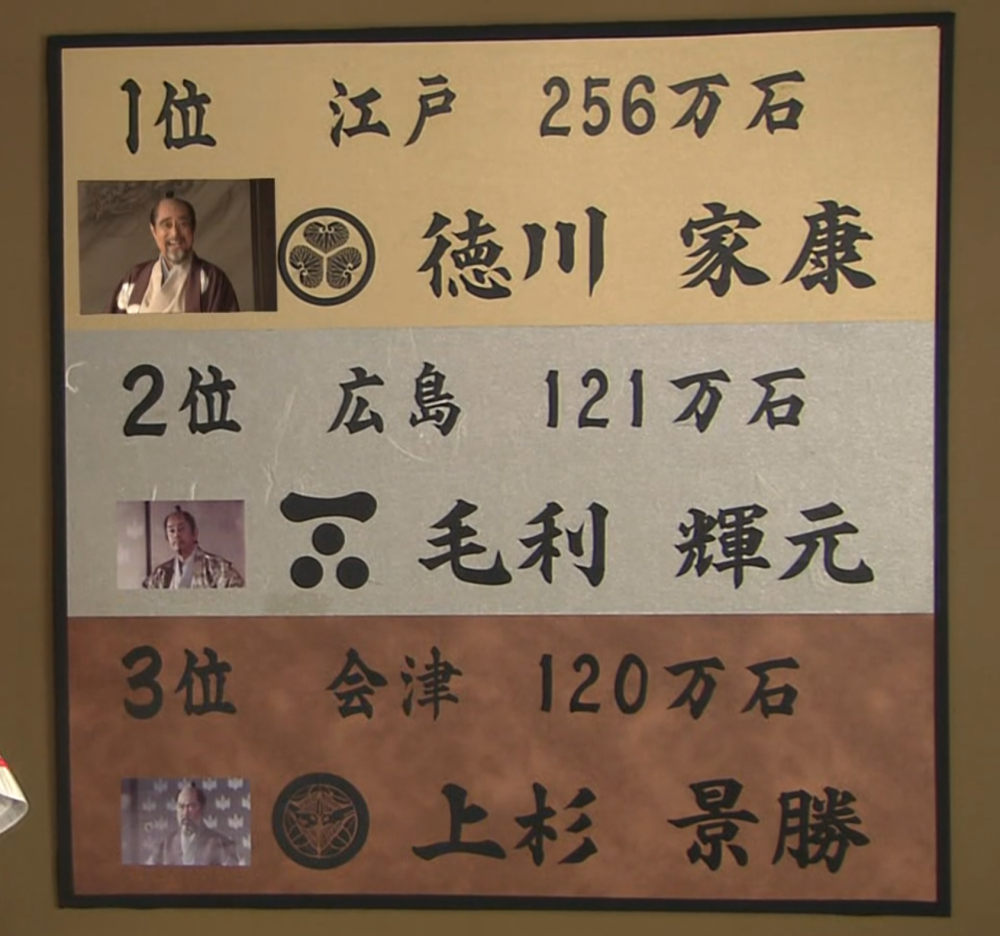 1位 江戸 256万石
徳川 家康
2位 広島 121万石
毛利 輝元
3位 会津 120万石
上杉 景勝